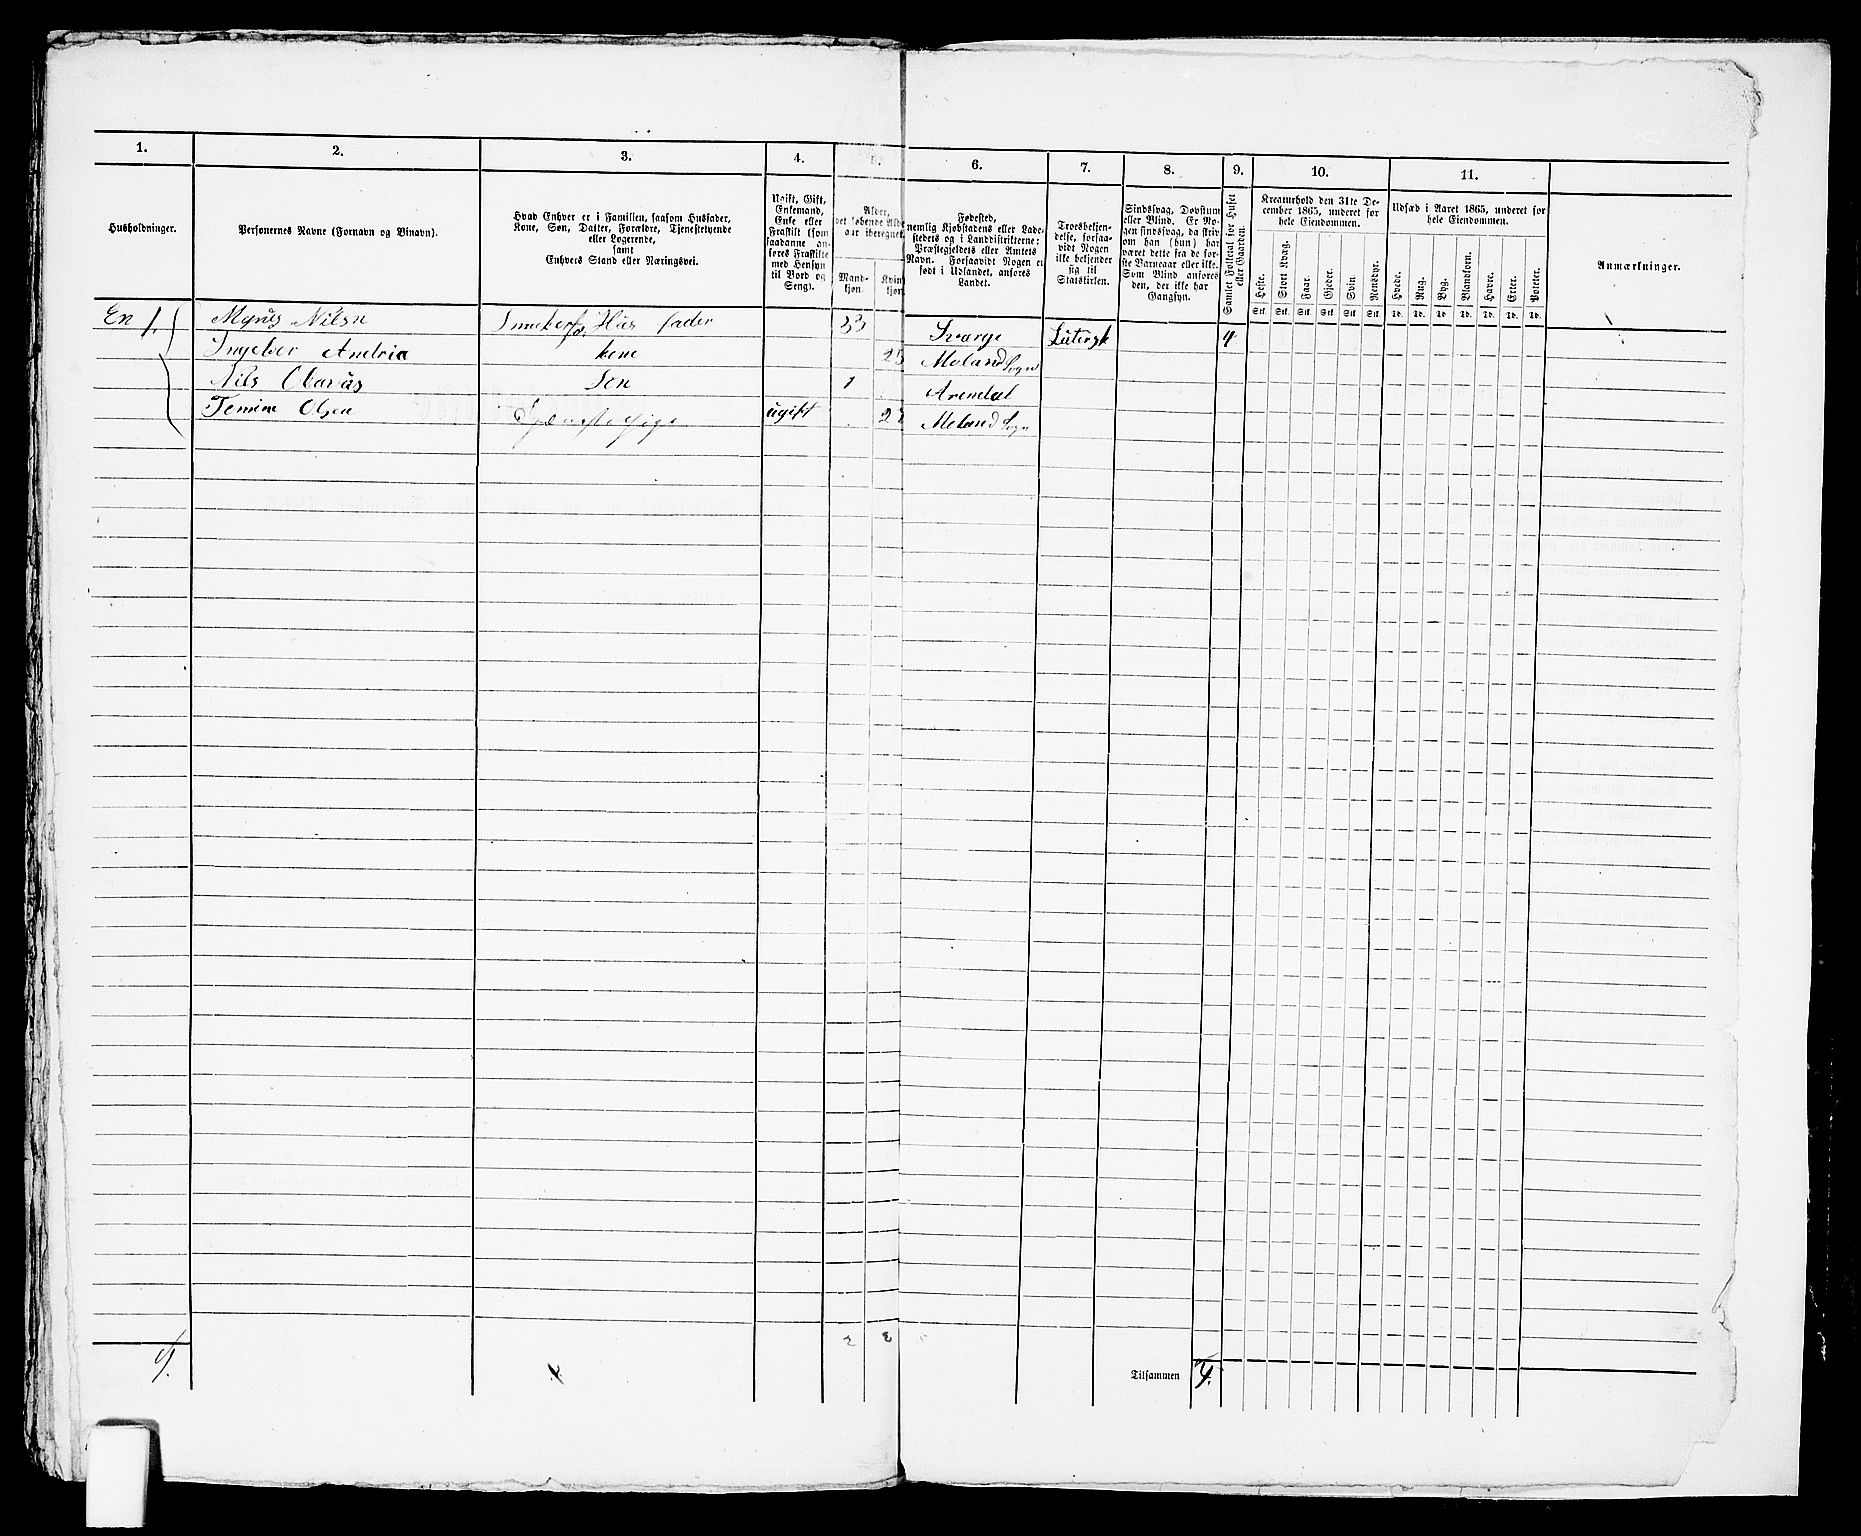 1. 2. 3. 4. 5. 6. 7. 8. 9. 10. 11.
Husholdninger.
Personernes Navne (Fornavn og Tilnavn).
Hvad Enhver er i Familien, saasom Husfader,
Kone, Søn, Datter, Forældre, Tjenestetyende
eller Logerende,
samt
Enhvers Stand eller Næringsvei.
Ugift, Gift,
Enkemand,
Enke eller
Fraskilt (som
saadanne an-
føres Fraskilte
med Hensyn
til Bord og
Seng).
Alder,
det løbende Alders-
aar iberegnet
Mand-
kjøn.
Kvin-
kjøn
Fødested,
nemlig Kjøbstadens eller Lade-
stedets og i Landdistrikterne:
Præstegjeldets eller Amtets
Navn. Forsaavidt Nogen er
født i Udlandet, anføres
Landet.
Troesbekjen-
delse, forsaa-
vidt Nogen
ikke bekjender
sig til
Statskirken.
Sindssvag, Døvstum
eller Blind. Er No-
gen sindssvag, da skriv
om han (hun) har
været dette fra de for-
ste Barneaar eller ikke.
Som Blind anføres
den, der ikke har
Gangsyn.
Samlet Folketal for Huset
eller Gaarden.
Kreaturhold den 31te De-
cember 1865, underet for
hele Eiendommen.
Heste. Stort Kvæg. Faar. Gjeder. Svin. Rensdyr.
Stk. Stk. Stk. Stk. Stk. Stk.
Udsæd i Aaret 1865, underet for
hele Eiendommen.
Hvede. Rug. Byg. Blandkorn. Havre. Erter. Poteter.
Td. Td. Td. Td. Td. Td. Td.
Anmærkninger.
En 1. Nilsn Huus fader 33 Lutersk 4
Ingebor Andria kone 25 Moland Sogn
Nils Olavus Son 1 Arendal
Olsen ugift Moland Sogn
2
Tilsammen 4.